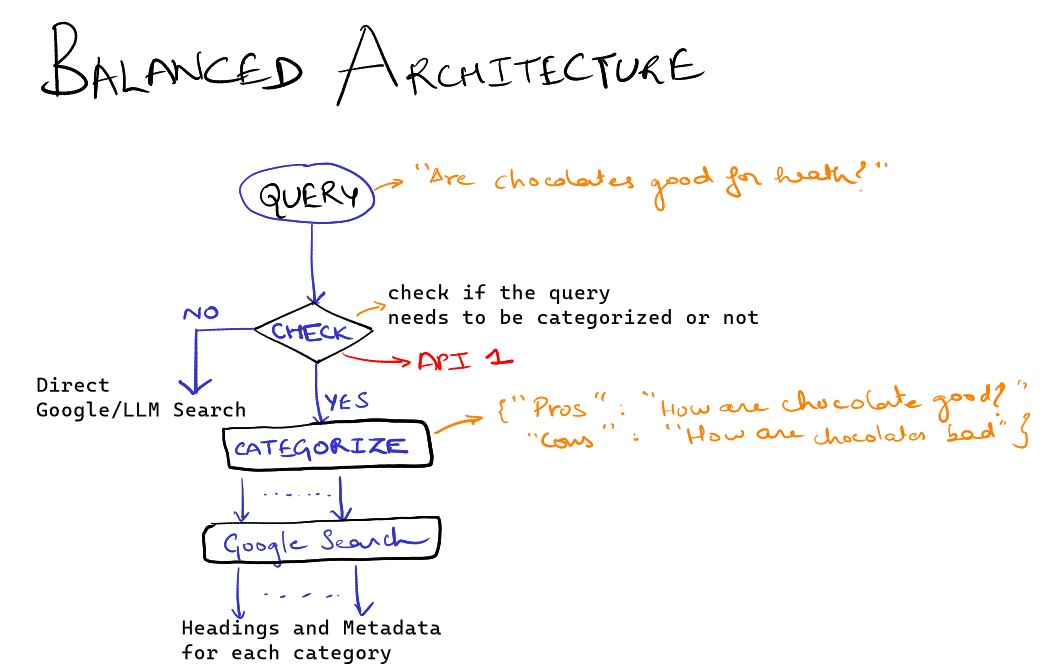 BALANCED ARCHITECTURE
QUERY
"Are chocolates good for heath?"
check if the query
needs to be categorized or not
NO
CHECK
API 1
Direct
Google/LLM Search
YES
{"Pros" : "How are chocolate good?"
"Cons" : "How are chocolates bad"}
CATEGORIZE
Google Search
Headings and Metadata
for each category